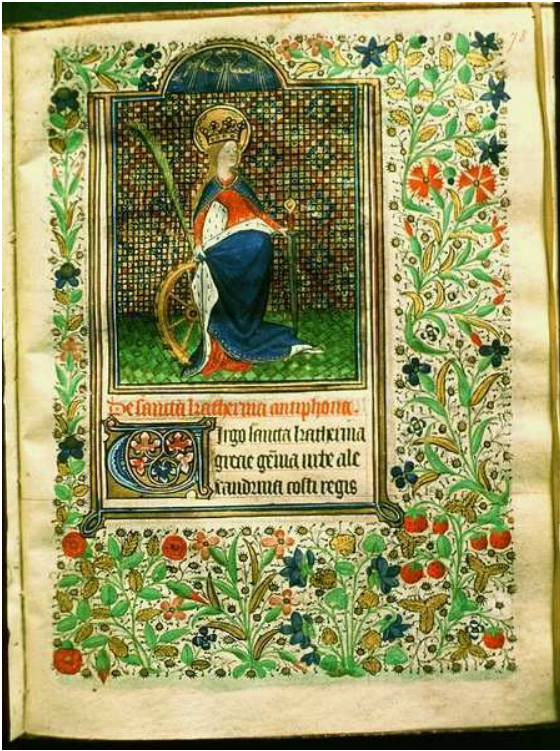 78
De sancta katherina antiphona.
Virgo sancta katherina
grecie gēma urbe ale
xandrina costi regis